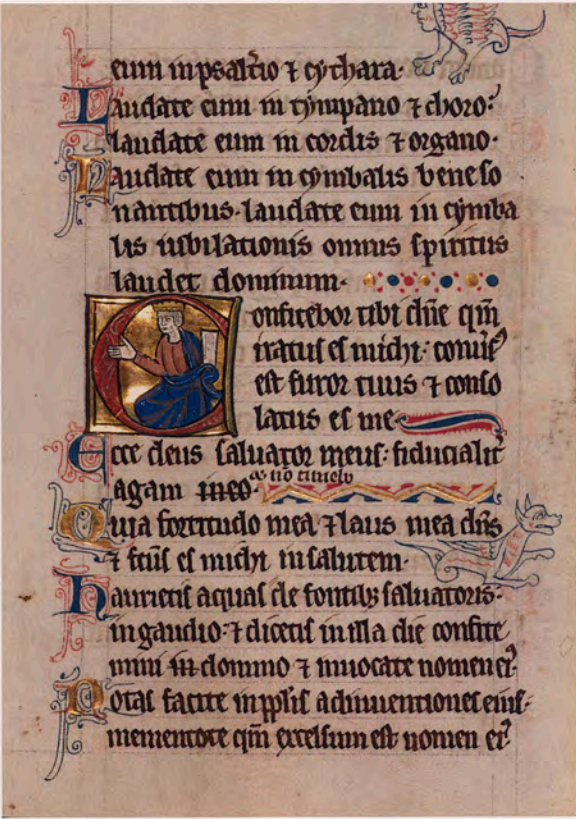 eum in psalt̉io ⁊ cythara·
Laudate eum in tympano ⁊ choro:
laudate eum in cordis ⁊ organo·
Laudate eum in cymbalis bene so
nantibus· laudate eum in cymba
lis iubilationis omnis spiritus
laudet dominum·
Confitebor tibi dn̄e qm̄
iratus es michi: conuer̉
est furor tuus ⁊ conso
latus es me
Ecce deus saluator meus: fiducialit̉
agam in eo· ⁊ nō timebo
Quia fortitudo mea ⁊ laus mea dn̄s
⁊ fc̄us es michi in salutem·
Haurietis aquas de fontibꝫ saluatoris·
in gaudio: ⁊ dicetis in illa die confite
mini in domino ⁊ inuocate nomen ei᾽
Notas facite in pplis adinuentiones eius·
mementote qm̄ excelsum est nomen ei᾽